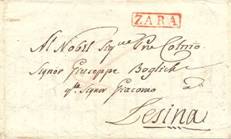 ZARA
Al Nobil Sig.r
Signor Giuseppe Boglich
q.m Signor Giacomo
Lesina